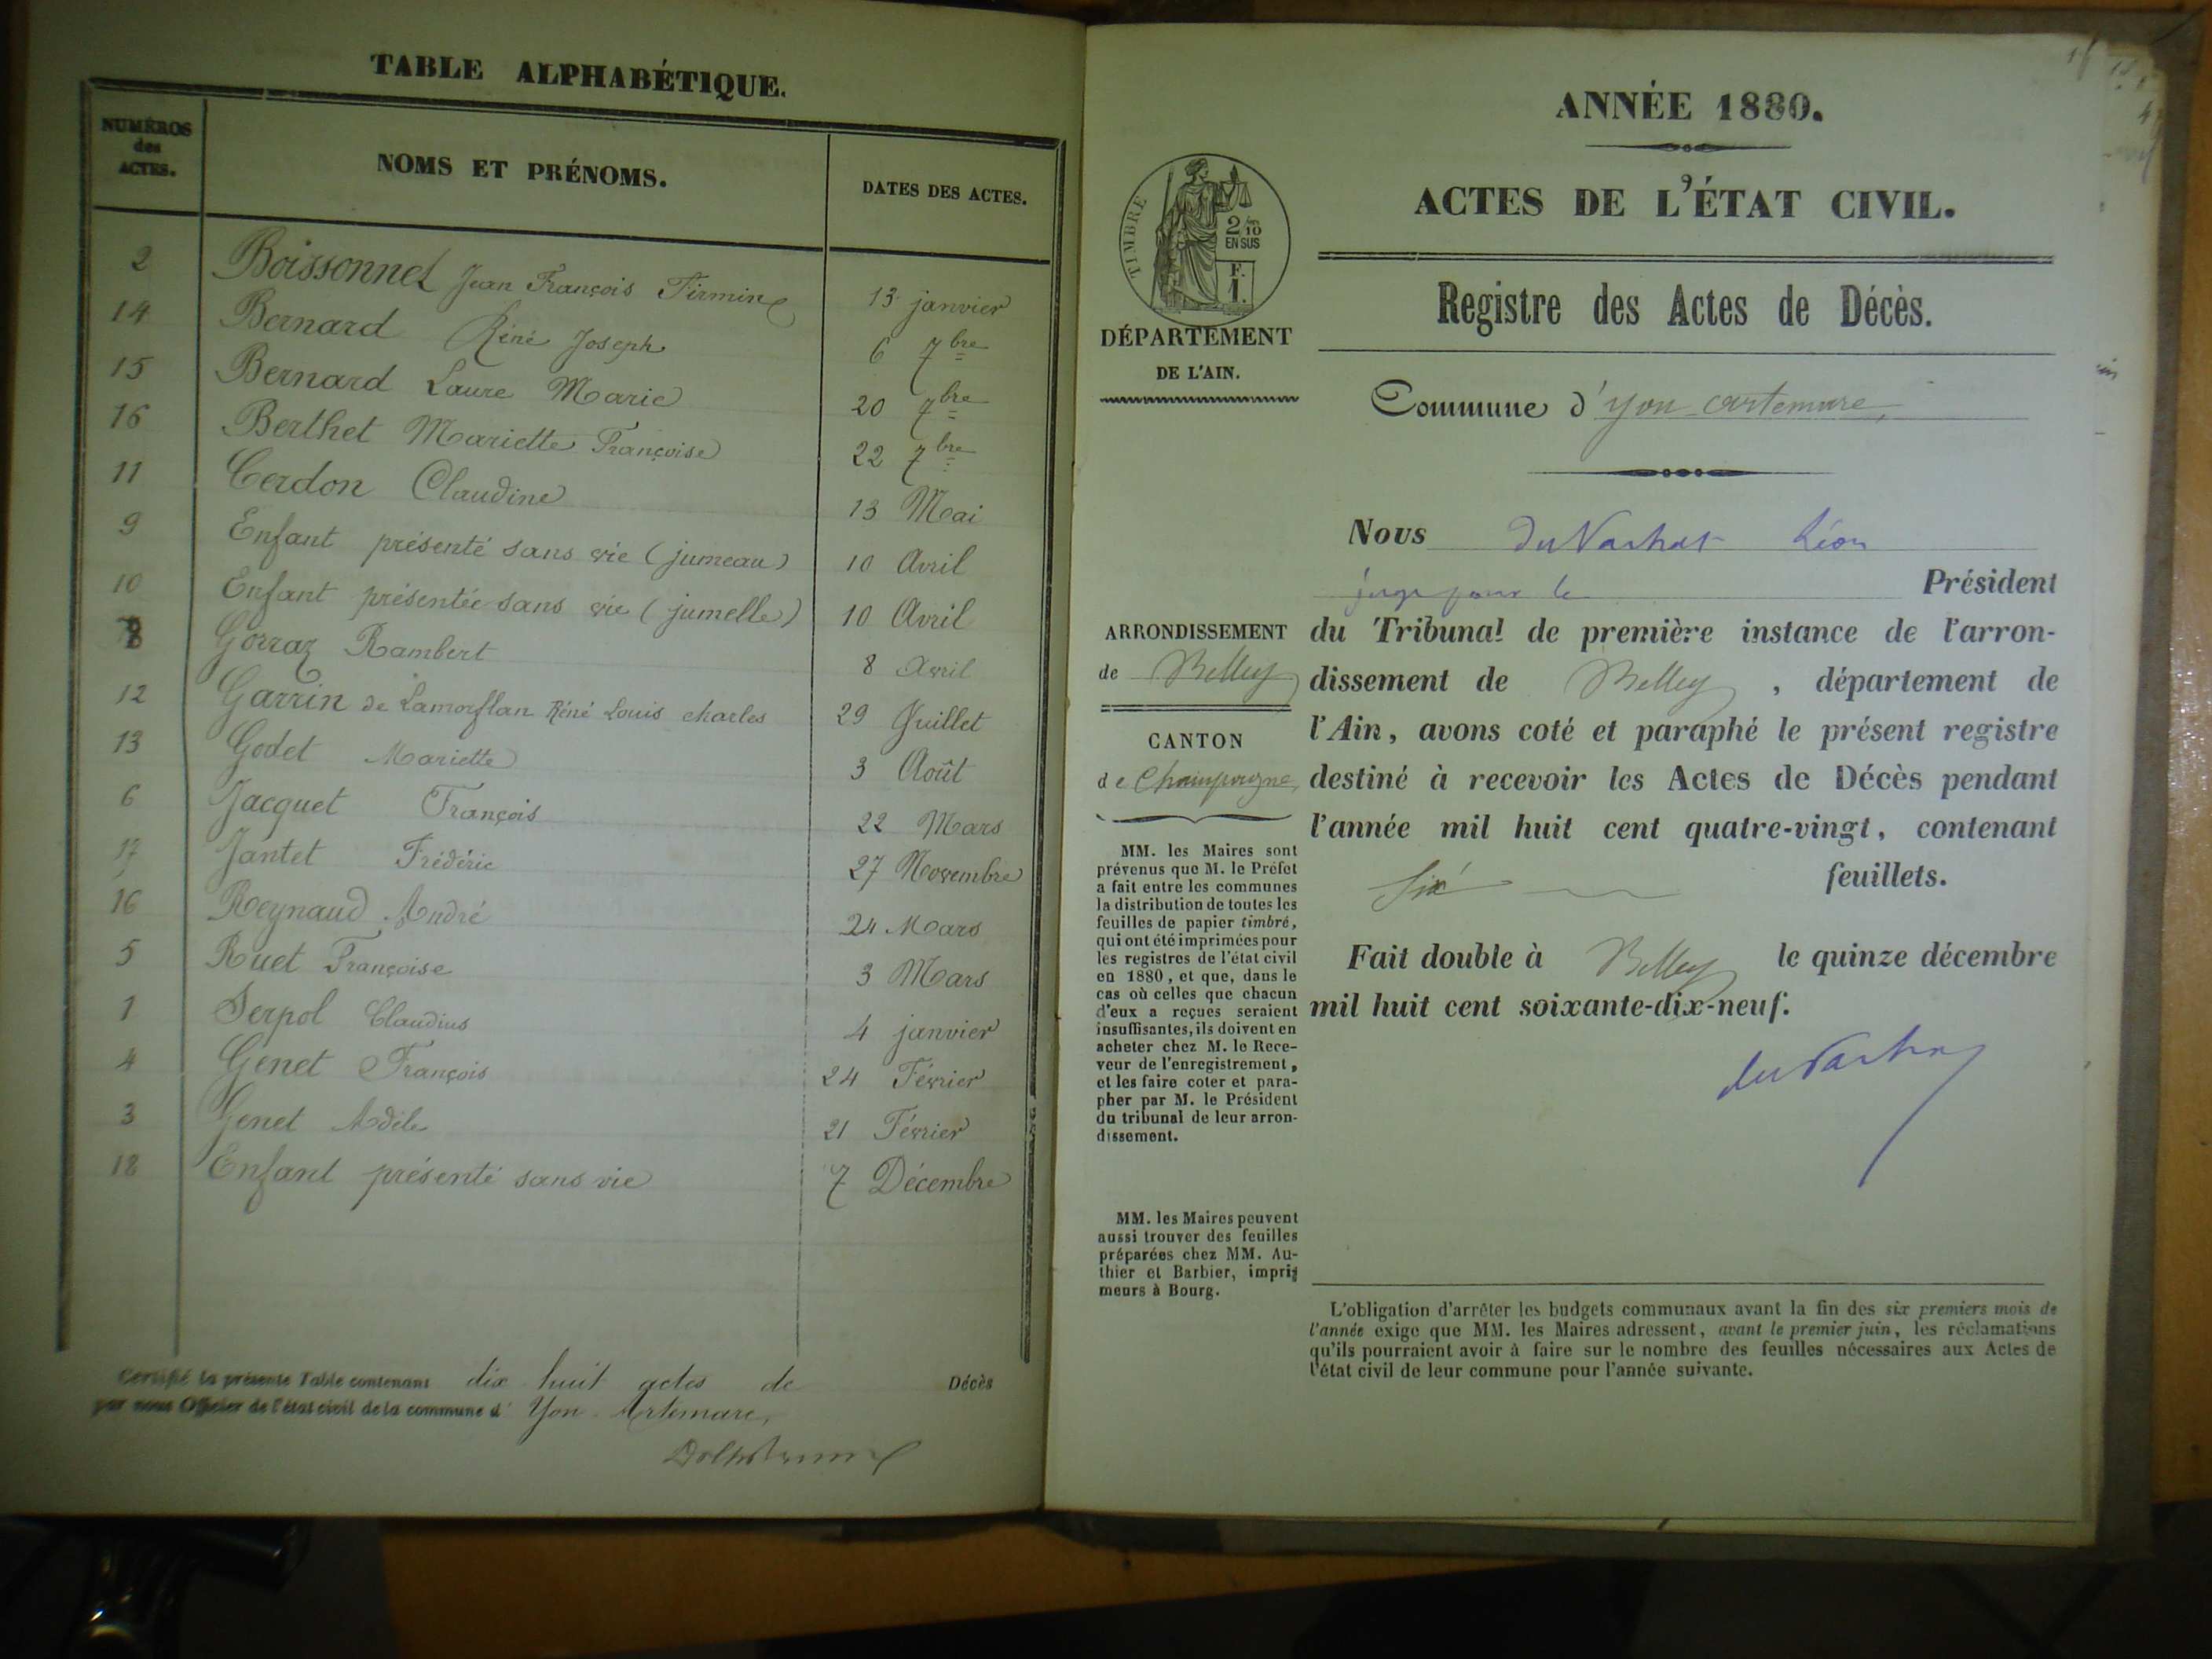 TABLE ALPHABÉTIQUE.
NUMÉROS des ACTES.
NOMS ET PRÉNOMS.
DATES DES ACTES.
2 Boissonnet Jean François Firmin 13 janvier
14 Bernard Réné Joseph 6 7bre
15 Bernard Laure Marie 20 7bre
16 Berthet Mariette Françoise 22 7bre
11 Cerdon Claudine 13 Mai
9 Enfant présenté sans vie (jumeau) 10 Avril
10 Enfant présentée sans vie (jumelle) 10 Avril
8 Gorraz Rambert 8 Avril
12 Garrin de Lamorflan Réné Louis charles 29 Juillet
13 Godet Mariette 3 Août
6 Jacquet François 22 Mars
17 Jantet Frédéric 27 Novembre
16 Reynaud André 24 Mars
5 Ruet Françoise 3 Mars
1 Serpol Claudius 4 janvier
4 Genet François 24 Février
3 Genet Adèle 21 Février
18 Enfant présenté sans vie 7 Décembre
Certifié la présente Table contenant dix huit actes de Décès
par nous Officier de l'état civil de la commune d' Yon Artemare,
ANNÉE 1880.
ACTES DE L'ÉTAT CIVIL.
TIMBRE
2/10
EN SUS
F.
1.
Registre des Actes de Décès.
DÉPARTEMENT
DE L'AIN.
Commune d'yon artemare,
Nous du Vachat Léon
juge pour le Président
ARRONDISSEMENT
de Belley
CANTON
de Champagne,
du Tribunal de première instance de l'arron-
dissement de Belley , département de
l'Ain, avons coté et paraphé le présent registre
destiné à recevoir les Actes de Décès pendant
l'année mil huit cent quatre-vingt, contenant
six feuillets.
Fait double à Belley le quinze décembre
mil huit cent soixante-dix-neuf.
du Vachat
MM. les Maires sont
prévenus que M. le Préfet
a fait entre les communes
la distribution de toutes les
feuilles de papier timbré,
qui ont été imprimées pour
les registres de l'état civil
en 1880, et que, dans le
cas où celles que chacun
d'eux a reçues seraient
insuffisantes, ils doivent en
acheter chez M. le Rece-
veur de l'enregistrement,
et les faire coter et para-
pher par M. le Président
du tribunal de leur arron-
dissement.
MM. les Maires peuvent
aussi trouver des feuilles
préparées chez MM. Au-
thier et Barbier, impri-
meurs à Bourg.
L'obligation d'arrêter les budgets communaux avant la fin des six premiers mois de
l'année exige que MM. les Maires adressent, avant le premier juin, les réclamations
qu'ils pourraient avoir à faire sur le nombre des feuilles nécessaires aux Actes de
l'état civil de leur commune pour l'année suivante.